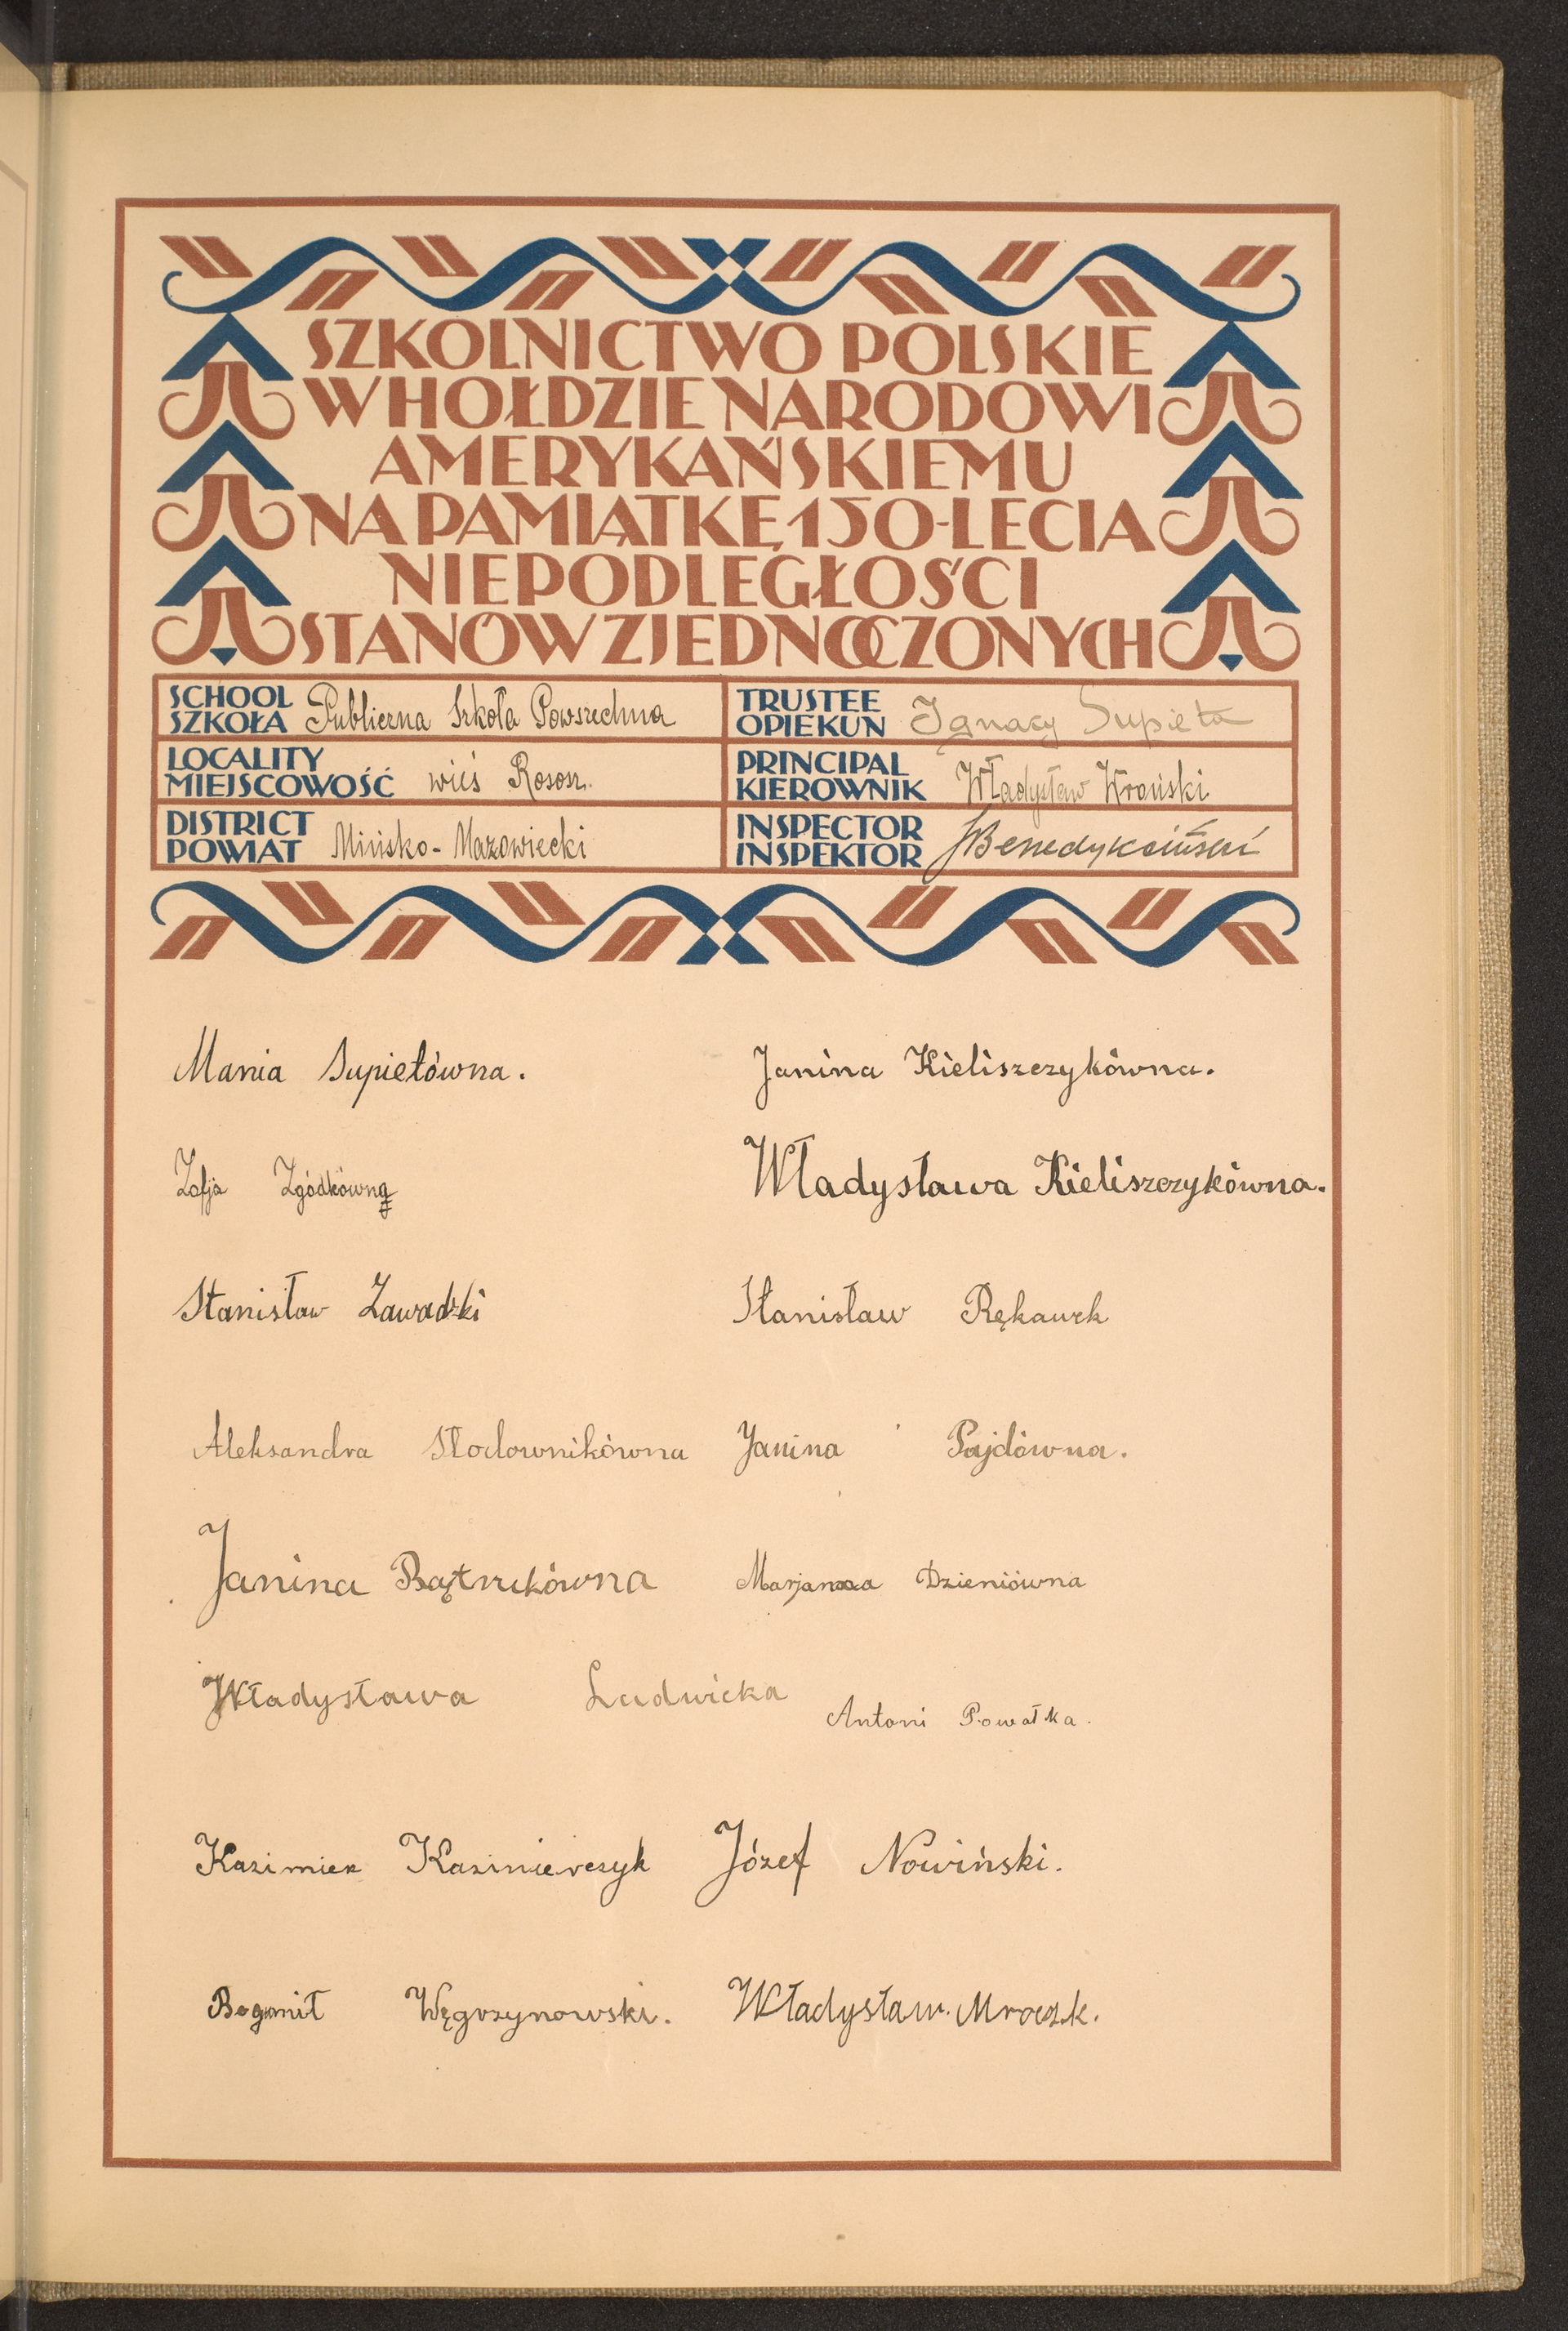 SZKOLNICTWO POLSKIE
W HOŁDZIE NARODOWI
AMERYKAŃSKIEMU
NA PAMIĄTKĘ 150-LECIA
NIEPODLEGŁOŚCI
STANÓW ZJEDNOCZONYCH
SCHOOL
SZKOŁA Publiczna Szkoła Powszechna
TRUSTEE
OPIEKUN Ignacy Supieta
LOCALITY
MIEJSCOWOŚĆ wieś Rososz.
PRINCIPAL
KIEROWNIK Władysław Wroński
DISTRICT
POWIAT Mińsko-Mazowiecki
INSPECTOR
INSPEKTOR
Mania Supietówna.
Janina Kieliszczykówna.
Zofja Zgódkówna
Władysława Kieliszczykówna.
Stanisław Zawadzki
Stanisław Rękawek
Aleksandra Stodownikówna
Janina Pajdówna.
Janina
Dzieniówna
Władysława Ludwicka
Antoni Powałka.
Kazimierz Kazimierczyk
Józef Nowiński.
Bogumił Węgrzynowski.
Władysław. Mroczk.